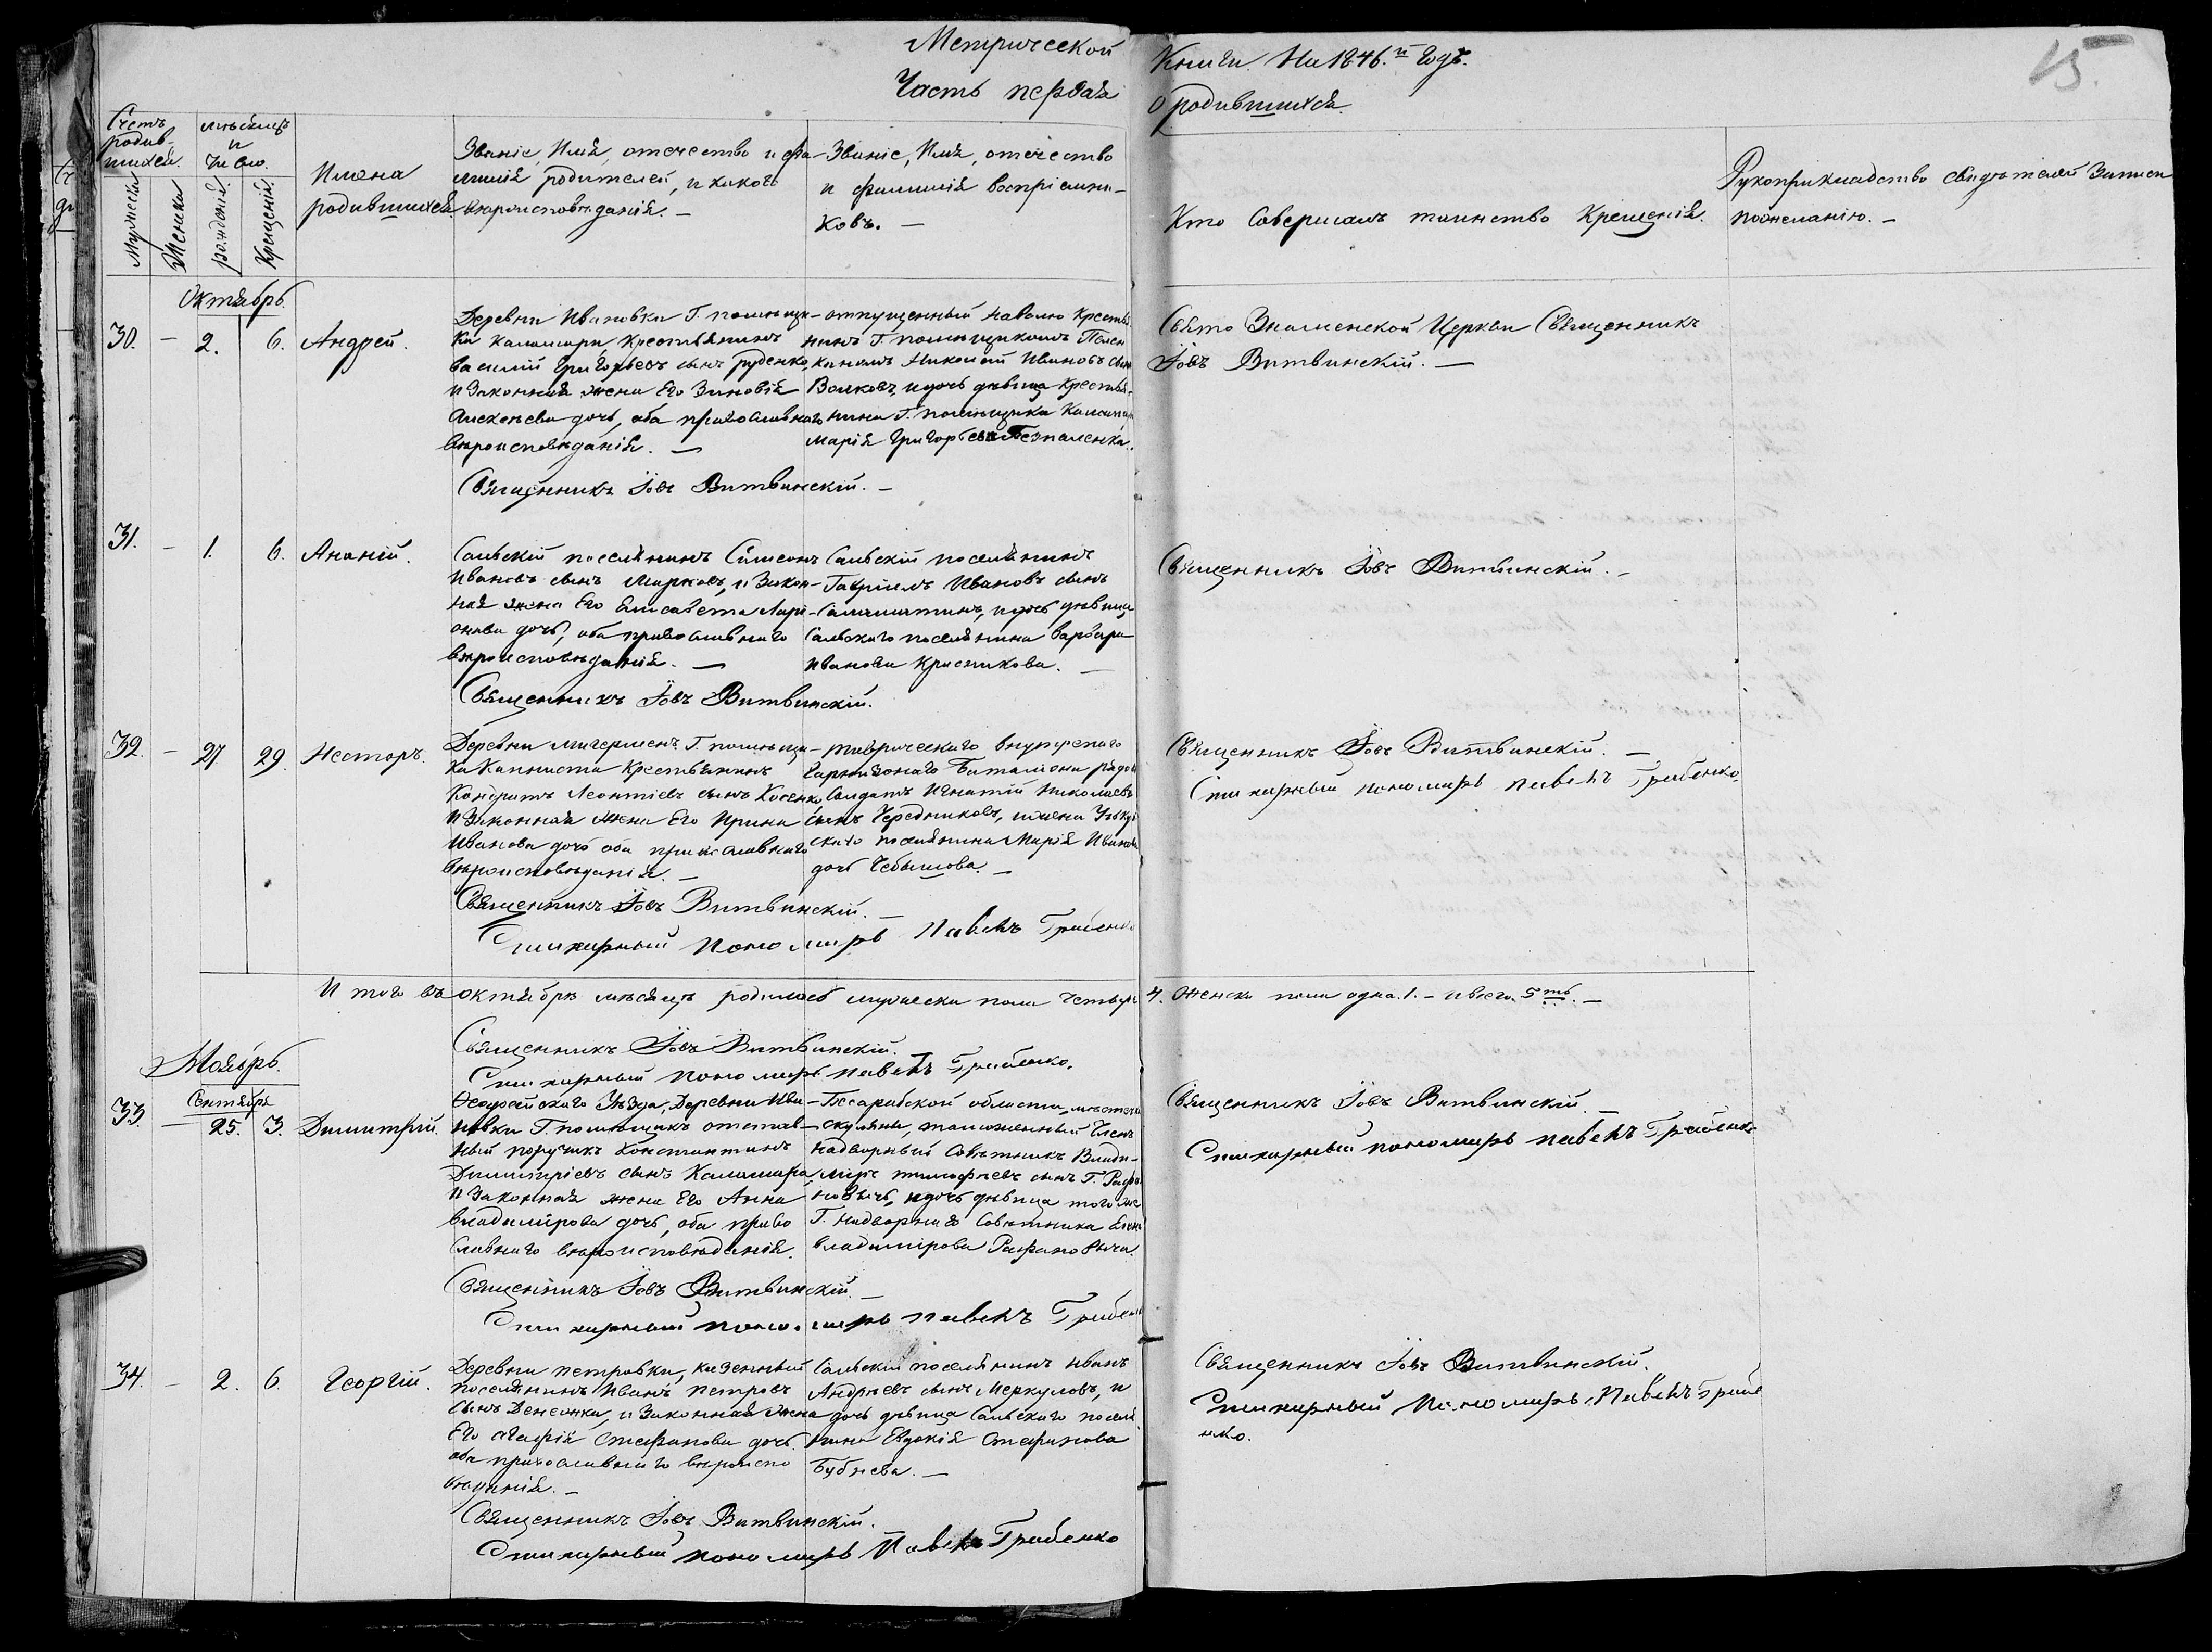 Метрической Книги На 1846.й Годъ.
15.
Часть первая О родившихся.
Счетъ родив-шихся.
Мужеска
Женска
мѣсяцъ и число.
рожденія.
Крещенія.
Имена родившихся
Званіе, Имя, отечество и фа-
милія родителей, и какого
вѣроисповѣданія. —
Званіе, Имя, отечество
и фамилія воспріемни-
ковъ. —
Кто Совершалъ таинство Крещенія.
Рукоприкладство свидѣтелей Записи
пожеланію. —
Октябрь.
30. — 2. 6. Андрей.
Деревни Ивановки Г. помѣщи-
ка Каламары Крестьянинъ
василій Григорьевъ сынъ руденко,
и Законная жена Его Зиновія
Алексѣева дочь, оба православнаго
вѣроисповѣданія. —
Священникъ Іовъ Витвинскій. —
отпущенный наволю Крестья
нинъ Г. помѣщикомъ
Николай Ивановъ сынъ
Волковъ, и дочь дѣвица Крестья-
нина Г. помѣщика
Марія Григорьева Безпаленка.
Свято Знаменской Церкви Священникъ
Іовъ Витвинскій. —
31. — 1. 6. Ананій.
Сальскій поселянинъ Симеонъ
Ивановъ сынъ Марковъ, и Закон-
ная жена Его Елисавета Лари-
онова дочь, оба православнаго
вѣроисповѣданія. —
Священникъ Іовъ Витвинскій.
Сальскій поселянинъ
Гавріилъ Ивановъ сынъ
Саламатинъ, и дочь дѣвица
Сальского поселянина варвара
Иванова Красникова. —
Священникъ Іовъ Витвинскій. —
32. — 27 29. Несторъ.
Деревни Г. помѣщи-
ка Капниста Крестьянинъ
Кондратъ Леонтіевъ сынъ Косенко,
и Законная жена Его Ирина
Иванова дочь оба православнаго
вѣроисповѣданія. —
Священникъ Іовъ Витвинскій. —
Стихарный Пономарь Павелъ Грабенко
таврического внутренаго
Гарнизонаго Баталіона рядов
Солдатъ Игнатій Николаевъ
сынъ Чередниковъ, и жена
ского поселянина Марія Иванова
дочь Чебышова. —
Священникъ Іовъ Витвинскій. —
Стихарный пономарь павелъ Грабенко.
И того въ октябрѣ мѣсяцѣ родилось мужеска пола четыре 4. Женска пола одна. 1. — и всего. 5ть. —
Священникъ Іовъ Витвинскій.
Стихарный пономарь павелъ Грабенко.
Ноябрь.
Сентября
33. — 25. 3. Димитрій.
Ѳеодосійского Уѣзда, Деревни Ива-
новки Г. помѣщикъ отстав-
ный поручикъ Константинъ
Димитріевъ сынъ Каламара,
и Законная жена Его Анна
владимірова дочь, оба право
славнаго вѣроисповѣданія.
Священникъ Іовъ Витвинскій. —
Стихарный пономарь павелъ Грабенко
Бесарабской области, мѣстеч
скуляны, таможенный Членъ
надворный Совѣтникъ Влади-
міръ тимофѣевъ сынъ Г. Рафа
новичъ, и дочь дѣвица того же
Г. надворнаго Совѣтника Елена
владимірова Рафановича.
Священникъ Іовъ Витвинскій. —
Стихарный пономарь павелъ Грабенко
34. — 2. 6. Георгій.
Деревни петровки, казенный
поселянинъ Иванъ петровъ
сынъ Денсонка, и Законная жена
Его агафія стефанова дочь
оба православнаго вѣроиспо
вѣданія. —
Священникъ Іовъ Витвинскій.
Стихарный пономарь Павелъ Грабенко
Сальскій поселянинъ иванъ
Андрѣевъ сынъ Меркуловъ, и
дочь дѣвица Сальского поселя
нина Евдокія Стефанова
Бубнева. —
Священникъ Іовъ Витвинскій.
Стихарный Пономарь, Павелъ Грабе
нко.